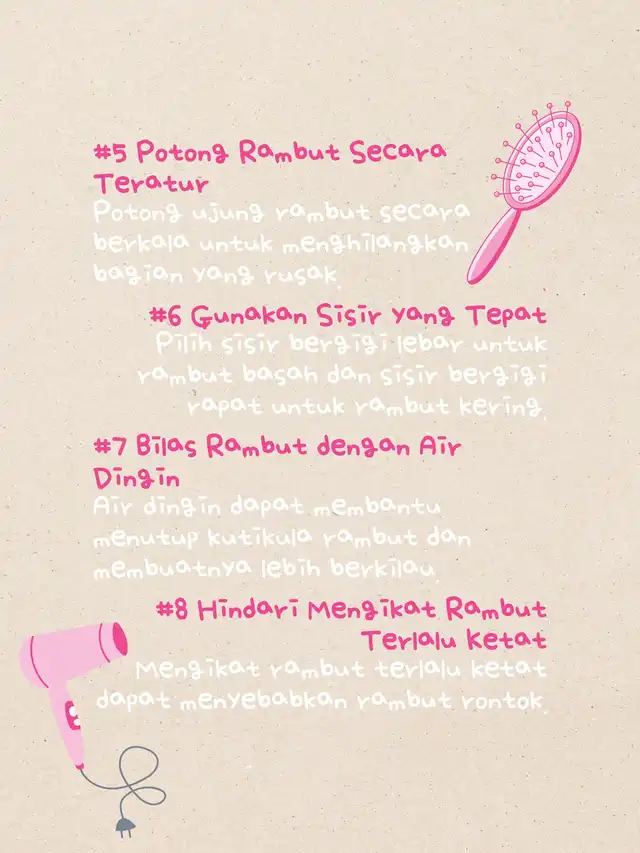 #5 Potong Rambut Secara
Teratur
Potong ujung rambut secara
berkala untuk menghilangkan
bagian yang rusak.
#6 Gunakan Sisir yang Tepat
Pilih sisir bergigi lebar untuk
rambut basah dan sisir bergigi
rapat untuk rambut kering.
#7 Bilas Rambut dengan Air
Dingin
Air dingin dapat membantu
menutup kutikula rambut dan
membuatnya lebih berkilau.
#8 Hindari Mengikat Rambut
Terlalu Ketat
Mengikat rambut terlalu ketat
dapat menyebabkan rambut rontok.